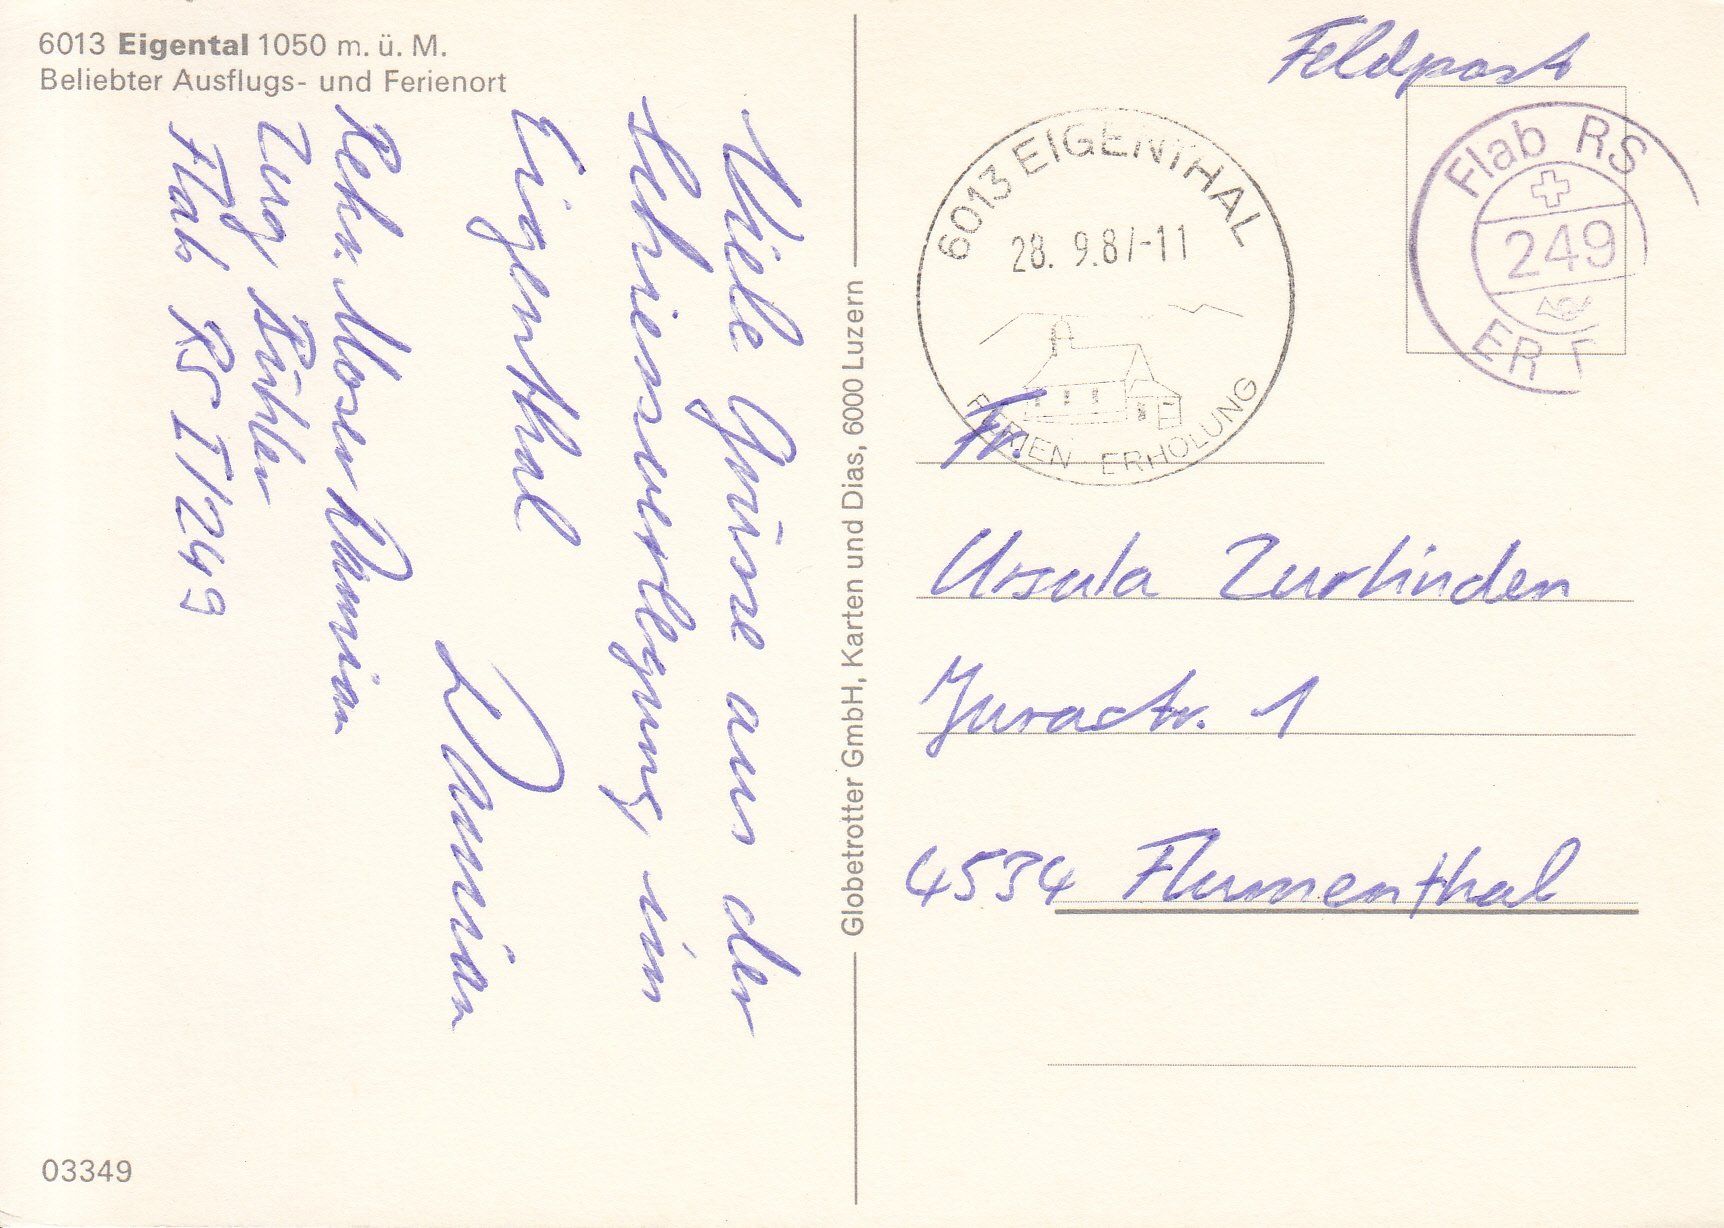 6013 Eigental 1050 m. ü. M.
Beliebter Ausflugs- und Ferienort
Viele Grüsse aus der
Schiessverlegung im
Eigenthal
Damian
Rekr. Moser Damian
Zug Bühler
Flab RS II/249
03349
Globetrotter GmbH, Karten und Dias, 6000 Luzern
Feldpost
6013 EIGENTHAL
28. 9.87-11
FERIEN ERHOLUNG
Flab RS
249
ER F
Fr.
Ursula Zurlinden
Jurastr. 1
4534 Flumenthal